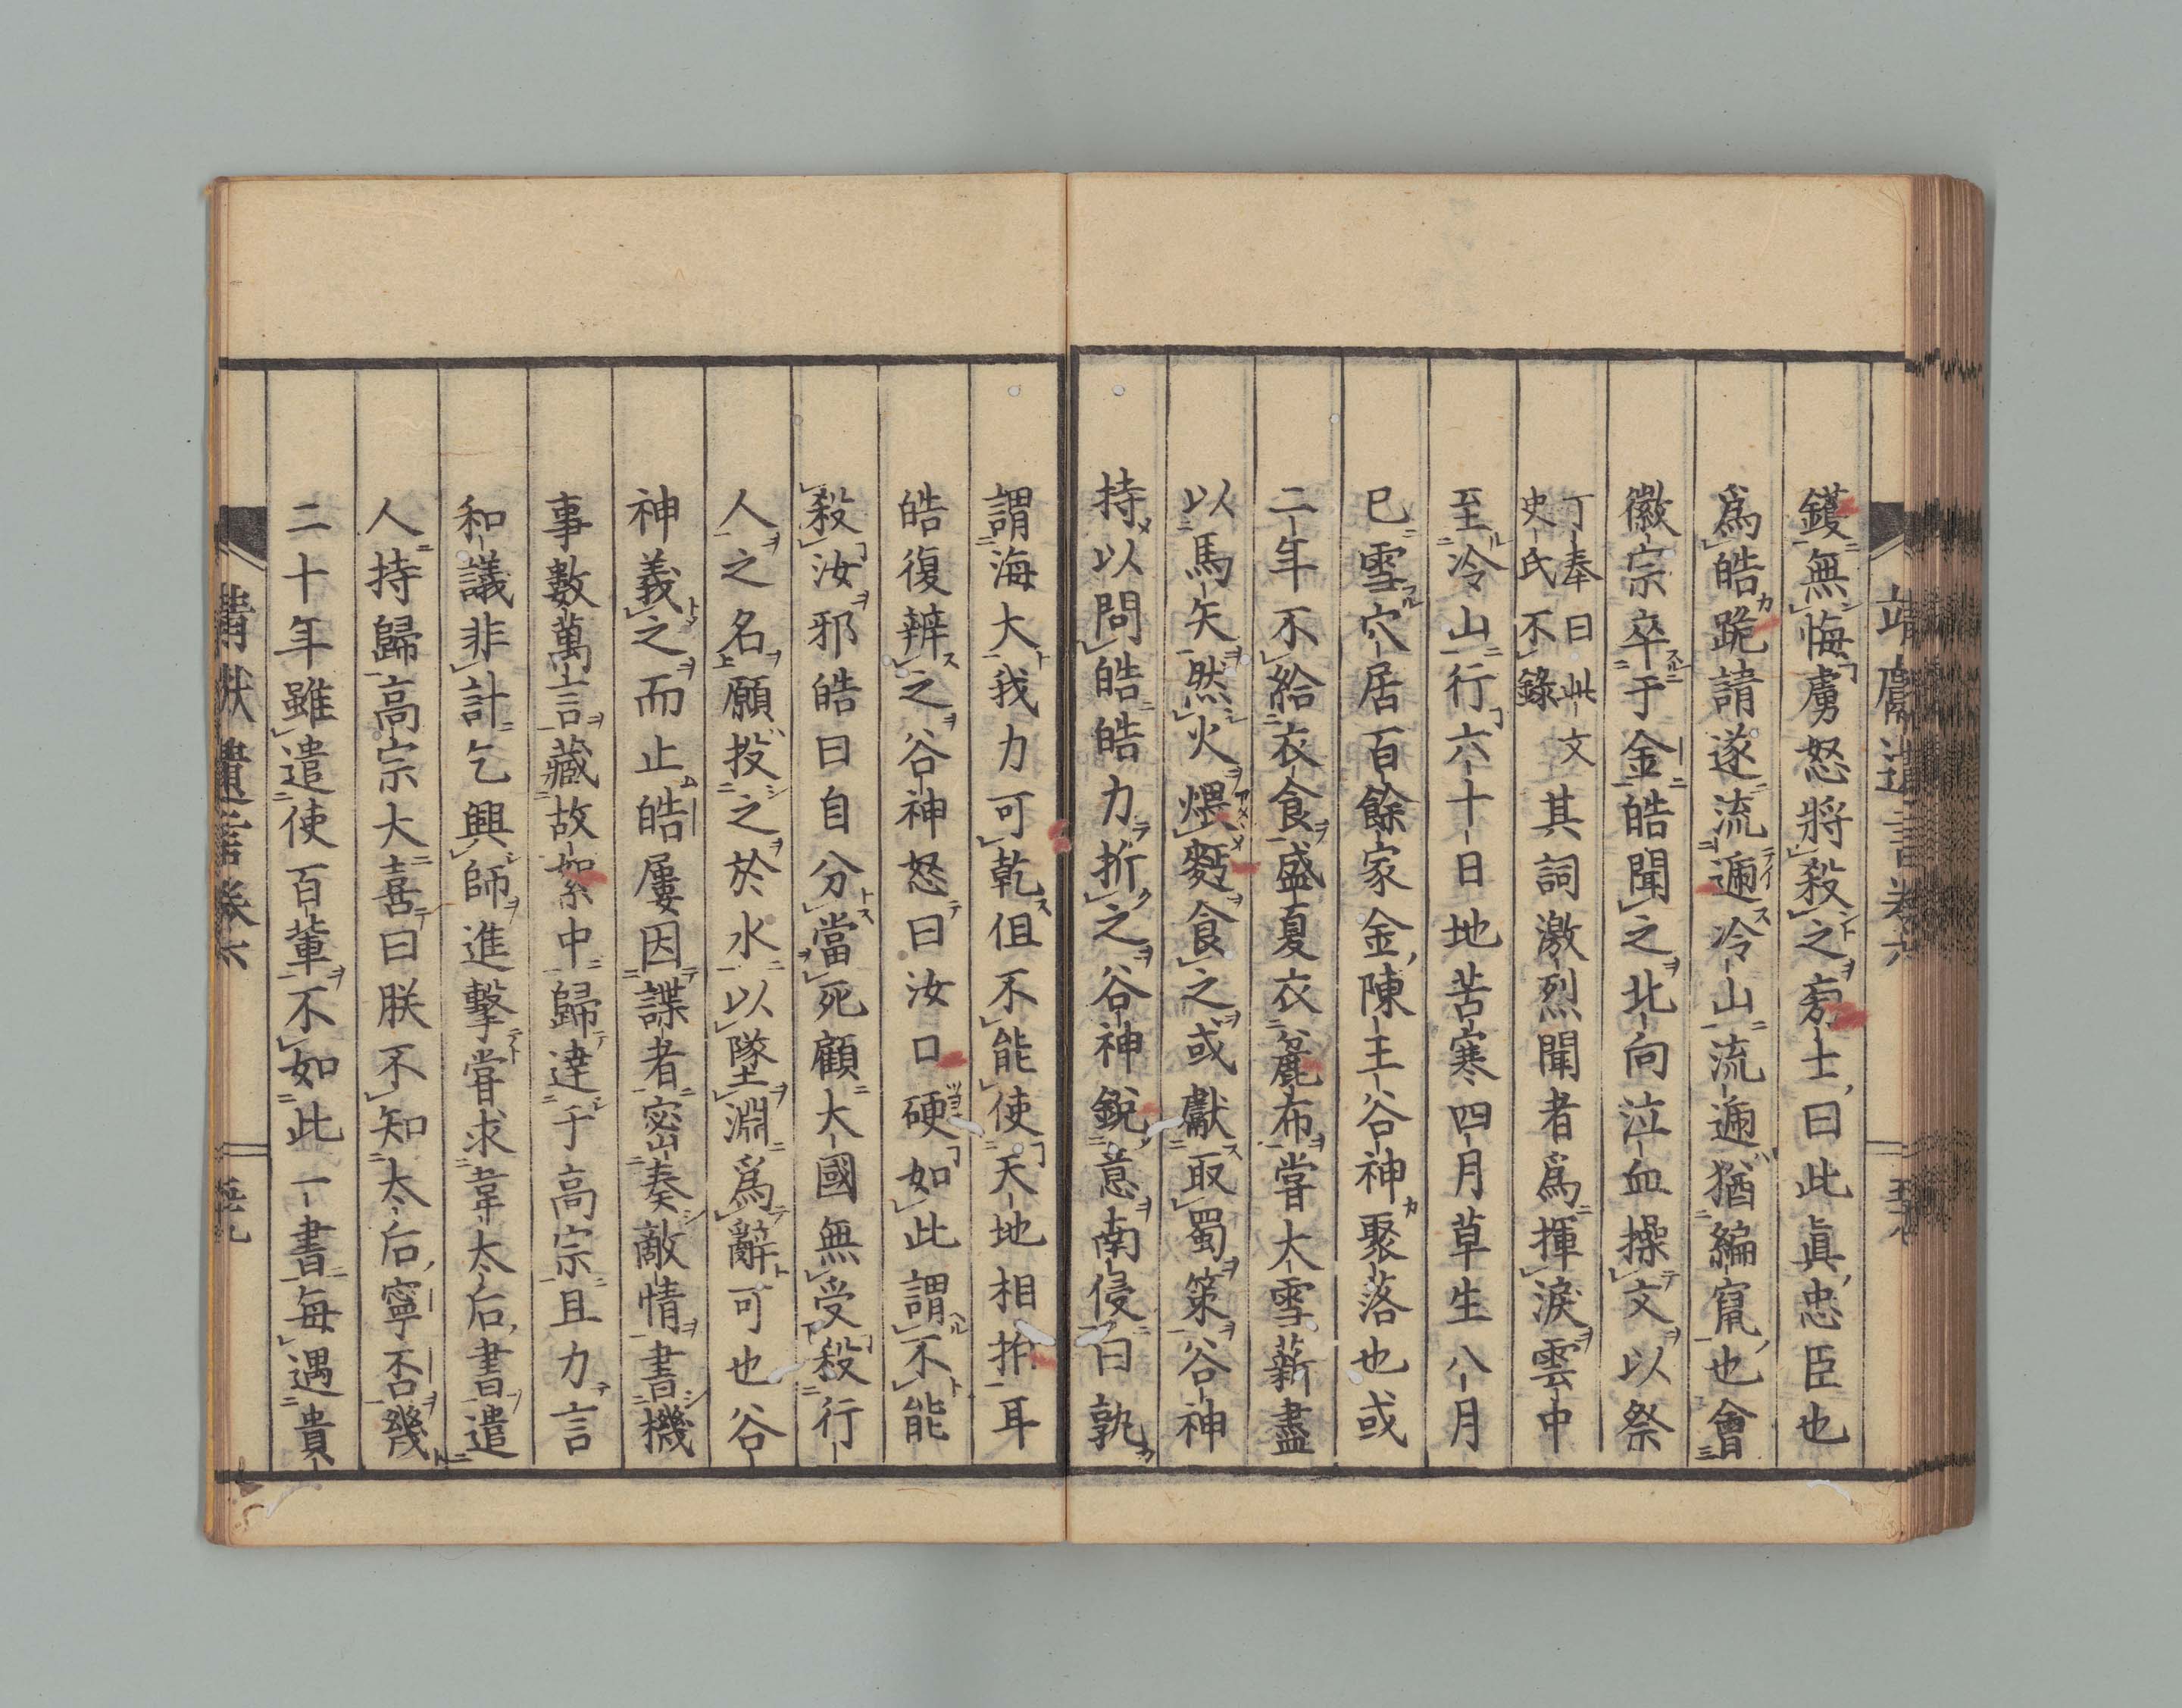 靖獻遺言卷六
鑊無悔虜怒將殺之旁士曰此眞忠臣也
爲皓跪請遂流遞冷山流遞猶編竄也會
徽宗卒于金皓聞之北向泣血操文以祭
丁奉曰此文
史氏不錄
其詞激烈聞者爲揮淚雲中
至冷山行六十日地苦寒四月草生八月
已雪穴居百餘家金陳王谷神聚落也或
二年不給衣食盛夏衣麁布嘗大雪薪盡
以馬矢然火煨麪食之或獻取蜀策谷神
持以問皓皓力折之谷神銳意南侵曰孰
謂海大我力可乾但不能使天地相拍耳
皓復辨之谷神怒曰汝口硬如此謂不能
殺汝邪皓曰自分當死顧大國無受殺行
人之名願投之於水以墜淵爲辭可也谷
神義之而止皓屢因諜者密奏敵情書機
事數萬言藏故絮中歸達于高宗且力言
和議非計乞興師進擊嘗求韋太后書遣
人持歸高宗大喜曰朕不知太后寧否幾
二十年雖遣使百輩不如此一書每遇貴
靖獻遺言卷六